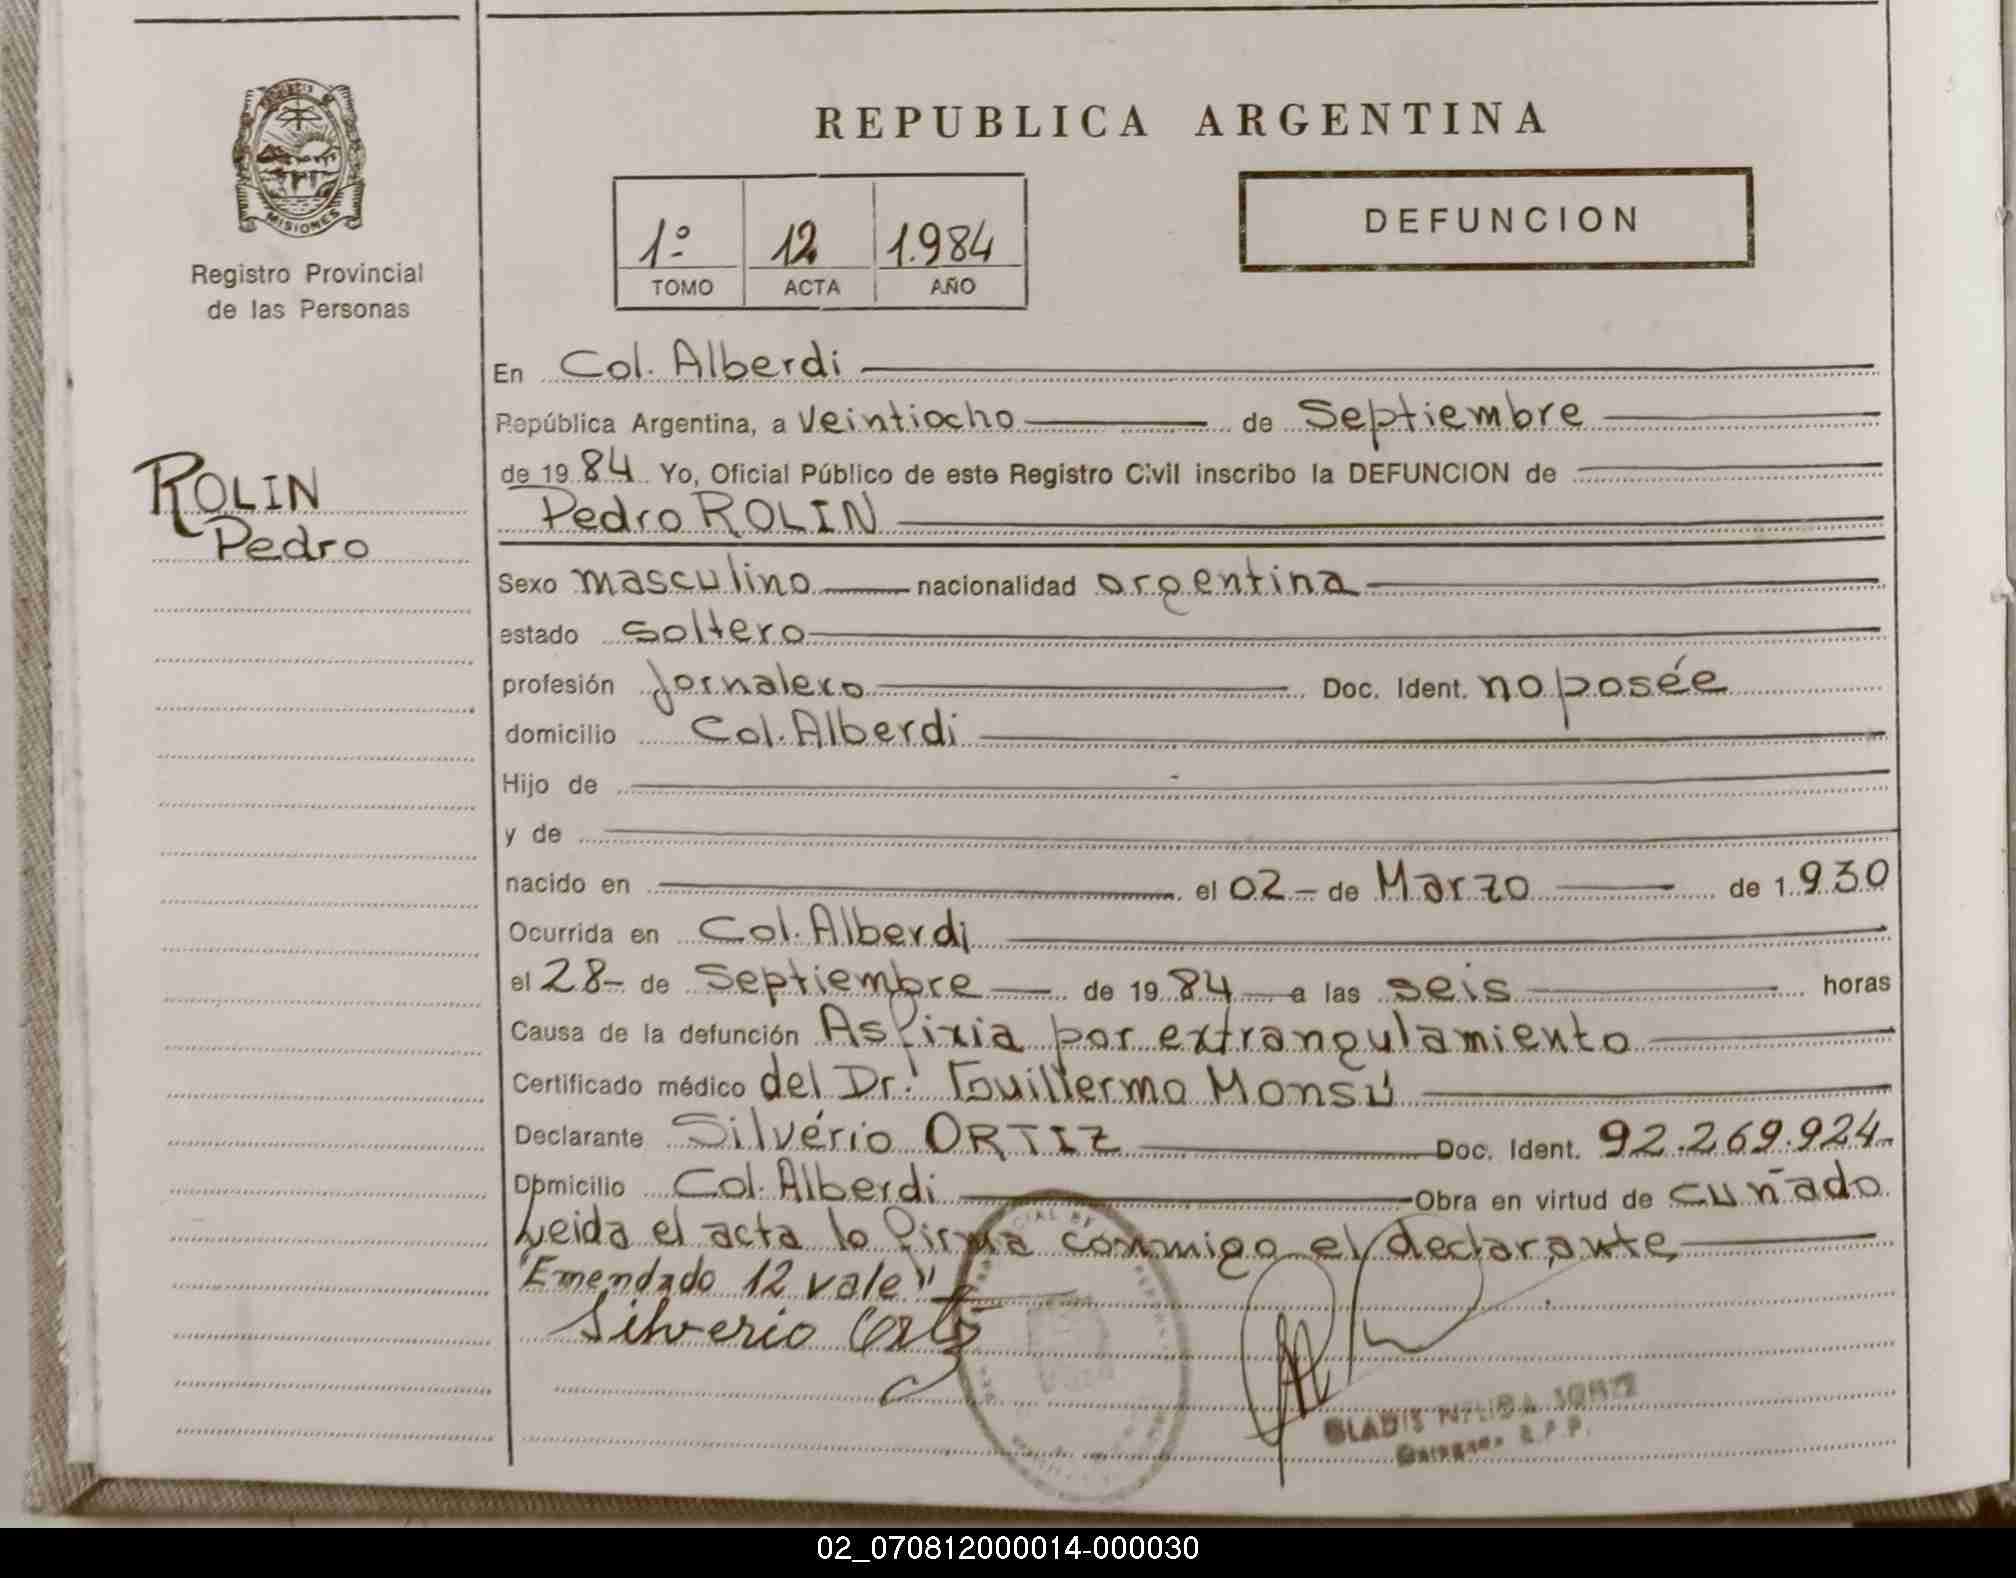 MISIONES
Registro Provincial
de las Personas
REPUBLICA ARGENTINA
1º 12 1.984
TOMO ACTA AÑO
DEFUNCION
ROLIN
Pedro
En Col. Alberdi
República Argentina, a veintiocho de Septiembre
de 1984 Yo, Oficial Público de este Registro Civil inscribo la DEFUNCION de
Pedro ROLIN
Sexo masculino nacionalidad argentina
estado soltero
profesión Jornalero Doc. Ident. no posée
domicilio Col. Alberdi
Hijo de
y de
nacido en el 02 de Marzo de 1.930
Ocurrida en Col. Alberdi
el 28 de Septiembre de 1984 a las seis horas
Causa de la defunción Asfixia por extrangulamiento
Certificado médico del Dr. Guillermo Monsú
Declarante Silvério ORTIZ Doc. Ident. 92.269.924
Domicilio Col. Alberdi Obra en virtud de cuñado
Leida el acta lo firma conmigo el declarante
"Emendado 12 vale"
Silverio Ortiz
GLADIS
R.P.P.
02_070812000014-000030